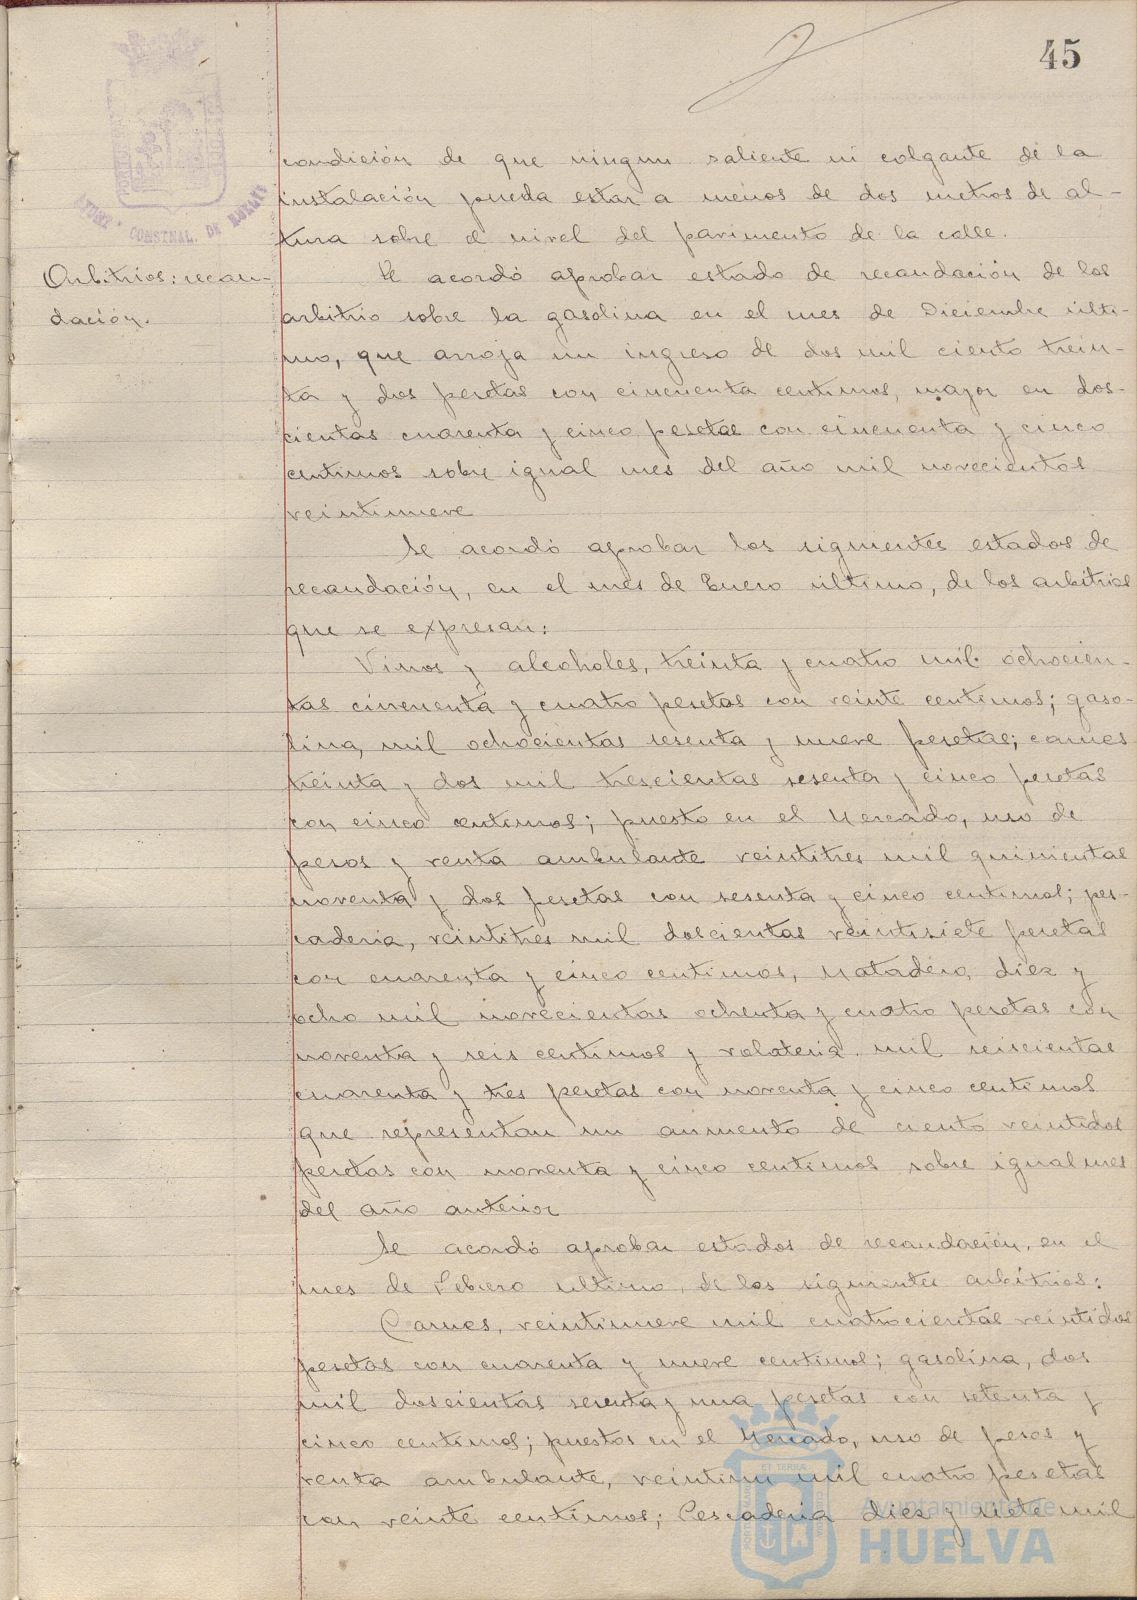 45
condición de que ningun saliente ni colgante de la
instalación pueda estar a menos de dos metros de al-
tura sobre el nivel del pavimento de la calle.
Arbitrios: recau-
dación.
Se acordó aprobar estado de recaudación de los
arbitrio sobre la gasolina en el mes de Diciembre ulti-
mo, que arroja un ingreso de dos mil ciento trein-
ta y dos pesetas con cincuenta centimos, mayor en dos-
cientas cuarenta y cinco pesetas con cincuenta y cinco
centimos sobre igual mes del año mil novecientos
veintinueve
Se acordó aprobar los siguientes estados de
recaudación, en el mes de Enero último, de los arbitrios
que se expresan:
Vinos y alcoholes, treinta y cuatro mil ochocien-
tas cincuenta y cuatro pesetas con veinte centimos; gaso-
lina, mil ochocientas sesenta y nueve pesetas; carnes
treinta y dos mil trescientas sesenta y cinco pesetas
con cinco centimos; puesto en el Mercado, uso de
pesos y venta ambulante veintitres mil quinientas
noventa y dos pesetas con sesenta y cinco centimos; pes-
caderia, veintitres mil doscientas veintisiete pesetas
con cuarenta y cinco centimos, Matadero, diez y
ocho mil novecientas ochenta y cuatro pesetas con
noventa y seis centimos y volateria mil seiscientas
cuarenta y tres pesetas con noventa y cinco centimos
que representan un aumento de ciento veintidos
pesetas con noventa y cinco centimos sobre igual mes
del año anterior
Se acordó aprobar estados de recaudación, en el
mes de Febrero ultimo, de los siguientes arbitrios:
Carnes, veintinueve mil cuatrocientas veintidos
pesetas con cuarenta y nueve centimos; gasolina, dos
mil doscientas sesenta y una pesetas con setenta y
cinco centimos; puestos en el Mercado, uso de pesos y
venta ambulante, veintiun mil cuatro pesetas
con veinte centimos; Pescaderia diez y siete mil
AYUNT. CONSTNAL. DE HUELVA
ET TERRA
Ayuntamiento de
HUELVA